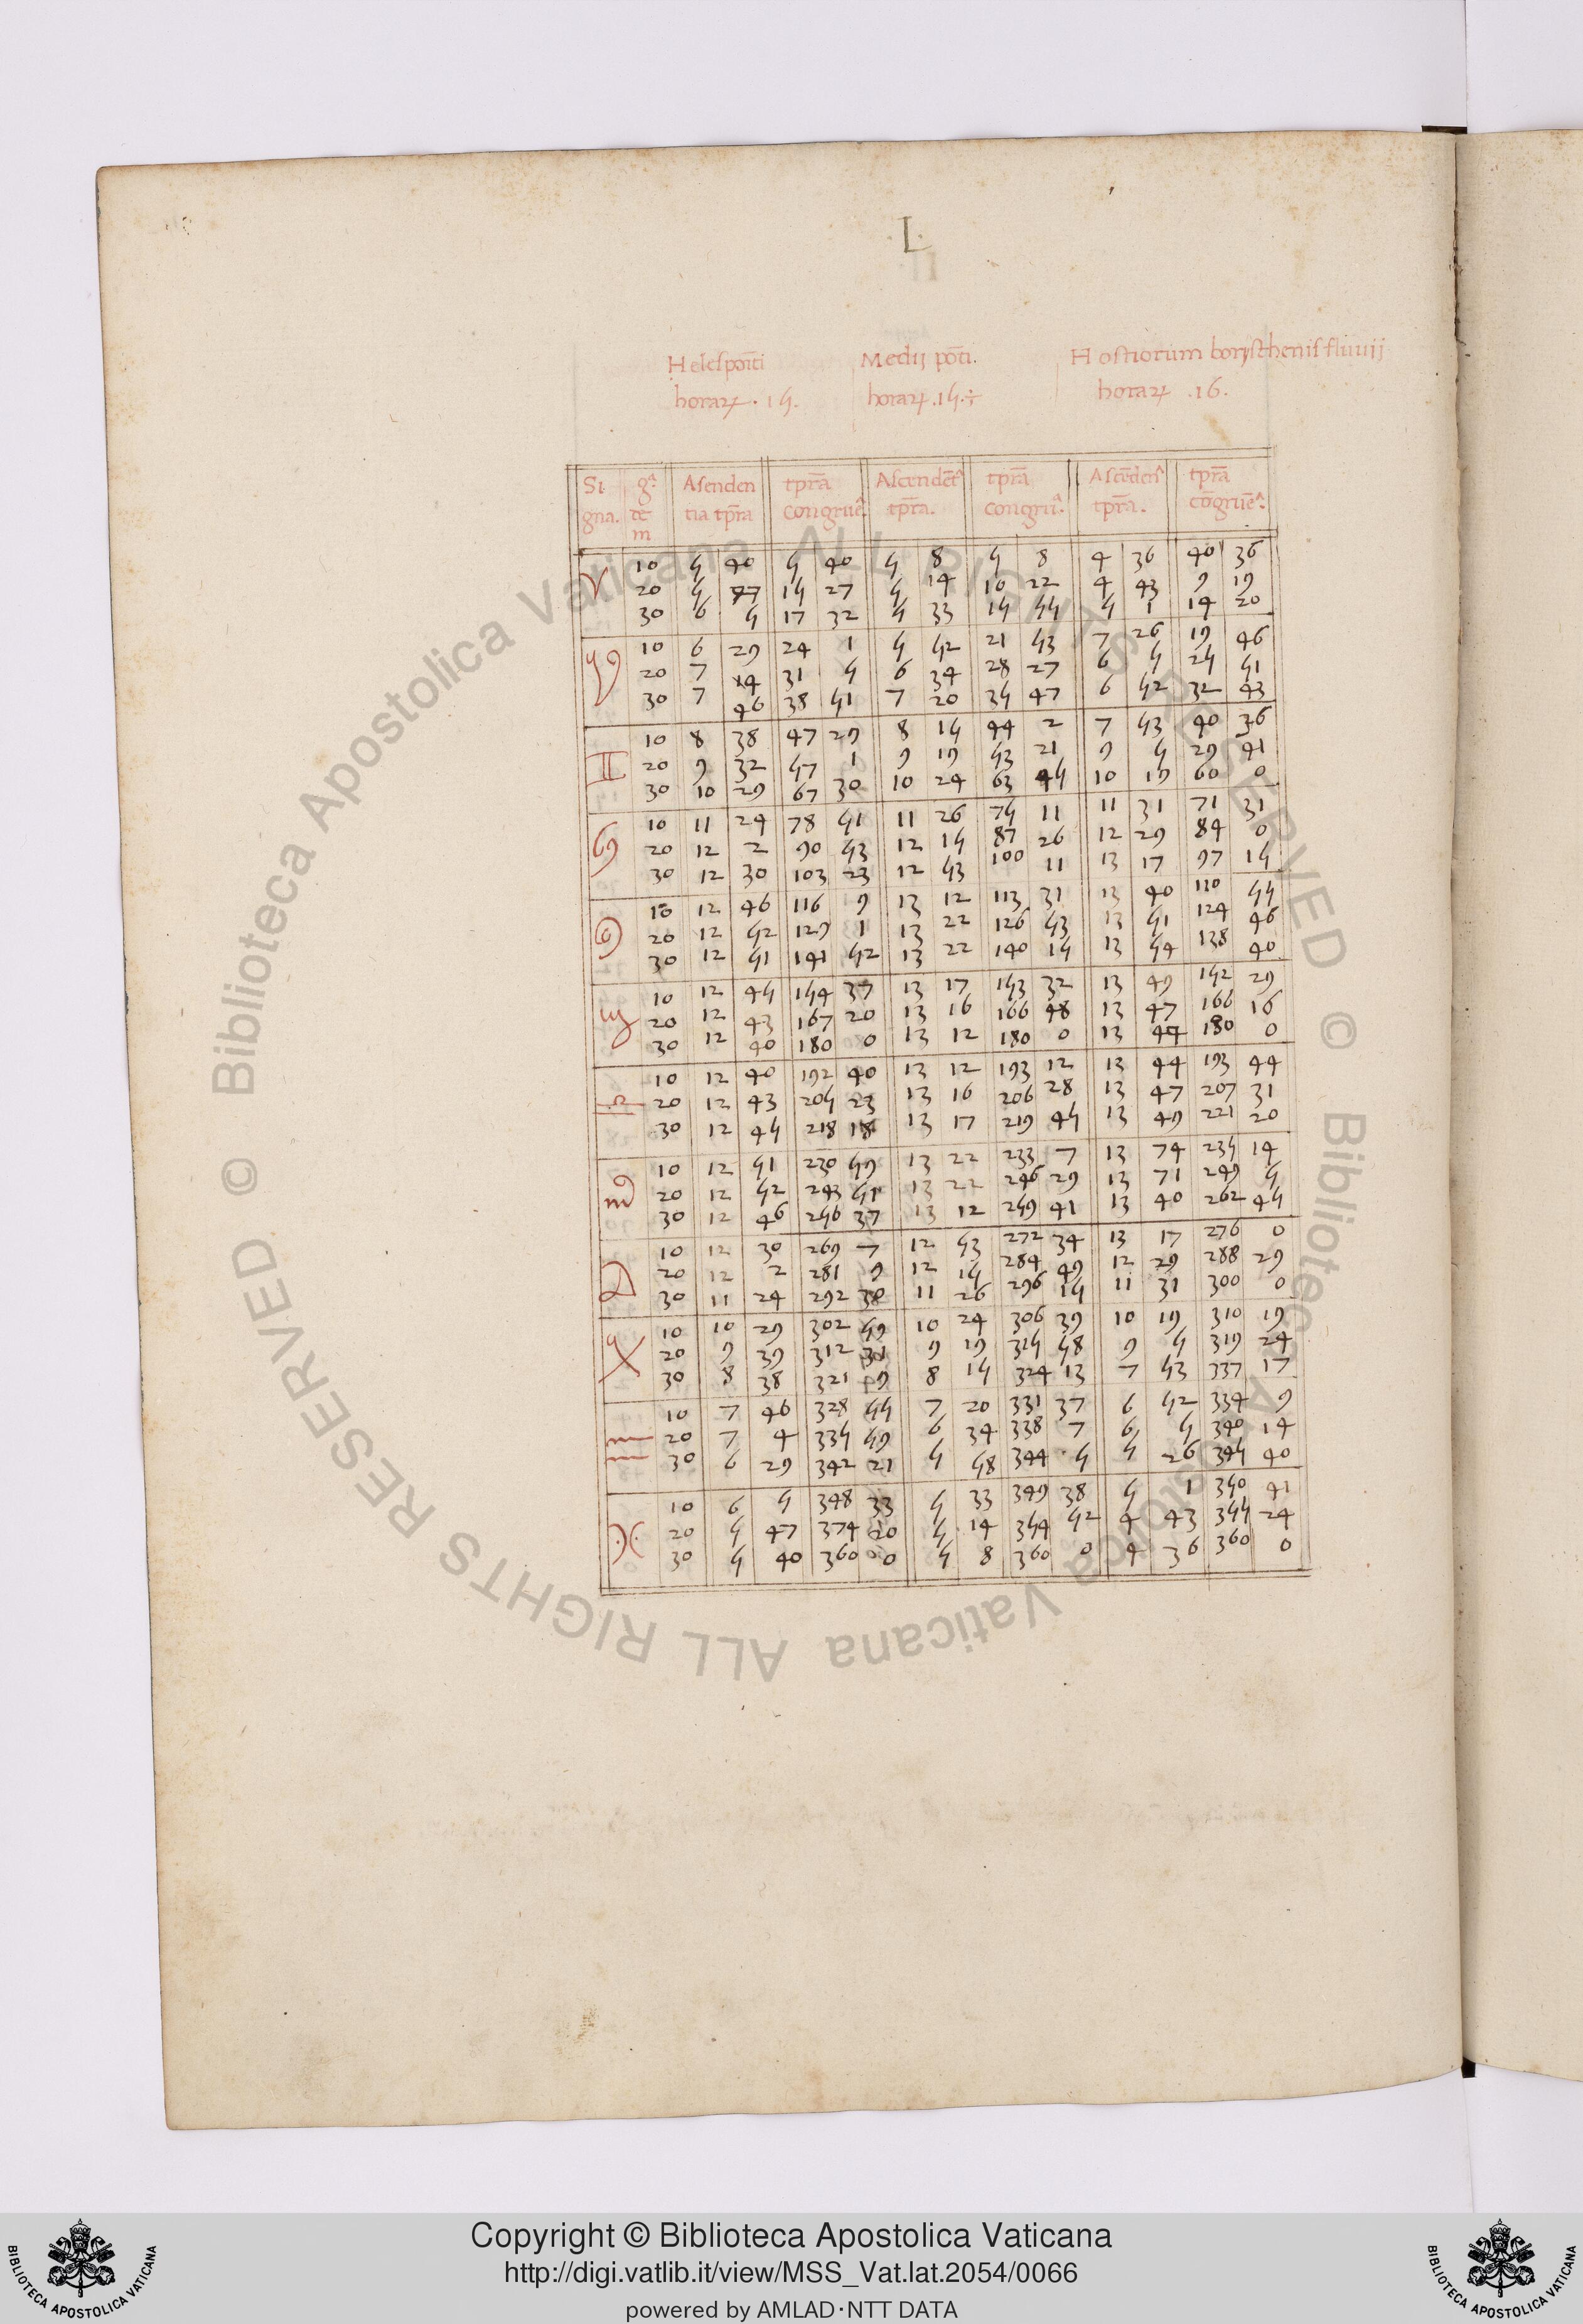 .L.
Helespōti Medij pōti. Hostiorum borysthenis fluuij
horaꝝ . 15. horaꝝ .15.÷ horaꝝ .16.
Si gᵃ. Asenden tp̄ra Ascendēt tp̄ra Ascēdens tp̄ra
gna. tia tp̄ra congruē tp̄ra. congrū. tp̄ra. cōgruē.
m
♈ 10 5 40 5 40 5 8 5 8 4 36 40 36
20 5 47 15 27 5 14 10 22 4 43 9 19
30 6 5 17 32 5 33 15 55 5 1 14 20
♉ 10 6 29 24 1 5 52 21 53 7 26 19 46
20 7 14 31 5 6 34 28 27 6 5 25 51
30 7 46 38 51 7 20 35 47 6 52 32 43
♊ 10 8 38 47 29 8 15 44 2 7 53 40 36
20 9 32 57 1 9 19 53 21 9 5 29 41
30 10 29 67 30 10 24 63 45 10 19 60 0
♋ 10 11 24 78 51 11 26 75 11 11 31 71 31
20 12 2 90 53 12 15 87 26 12 29 84 0
30 12 30 103 23 12 53 100 11 13 17 97 15
♌ 10 12 46 116 9 13 12 113 31 13 40 110 55
20 12 52 129 1 13 22 126 53 13 51 124 46
30 12 51 141 52 13 22 140 15 13 54 138 40
♍ 10 12 45 154 37 13 17 153 32 13 49 152 29
20 12 43 167 20 13 16 166 48 13 47 166 16
30 12 40 180 0 13 12 180 0 13 44 180 0
♎ 10 12 40 192 40 13 12 193 12 13 44 193 44
20 12 43 205 23 13 16 206 28 13 47 207 31
30 12 45 218 18 13 17 219 45 13 49 221 20
♏ 10 12 51 230 59 13 22 233 7 13 74 235 14
20 12 52 243 51 13 22 246 29 13 71 249 5
30 12 46 256 37 13 12 259 41 13 40 262 45
♐ 10 12 30 269 7 12 53 272 34 13 17 276 0
20 12 2 281 9 12 15 284 49 12 29 288 29
30 11 24 292 30 11 26 296 15 11 31 300 0
♑ 10 10 29 302 59 10 24 306 39 10 19 310 19
20 9 39 312 31 9 19 315 58 9 5 319 24
30 8 38 321 9 8 15 324 13 7 53 337 17
♒ 10 7 46 328 55 7 20 331 37 6 52 334 9
20 7 4 335 59 6 34 338 7 6 5 340 14
30 6 29 342 21 5 58 344 5 5 26 345 40
♓ 10 6 5 348 33 5 33 349 38 5 1 350 41
20 5 47 374 20 5 14 354 52 4 43 355 24
30 5 40 360 0 5 8 360 0 4 36 360 0
Copyright © Biblioteca Apostolica Vaticana
http://digi.vatlib.it/view/MSS_Vat.lat.2054/0066
powered by AMLAD·NTT DATA
BIBLIOTECA APOSTOLICA VATICANA
BIBLIOTECA APOSTOLICA VATICANA
© Biblioteca Apostolica Vaticana ALL RIGHTS RESERVED © Biblioteca Apostolica Vaticana ALL RIGHTS RESERVED